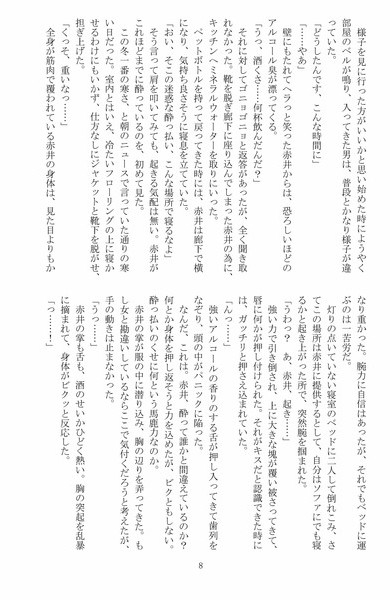 様子を見に行った方がいいかと思い始めた時にようやく
部屋のベルが鳴り、入ってきた男は、普段とかなり様子が違
っていた。
「どうしたんです、こんな時間に」
「……やぁ」
壁にもたれてヘラっと笑った赤井からは、恐ろしいほどの
アルコール臭が漂ってくる。
「うっ、酒くさ……何杯飲んだんだ？」
それに対してゴニョゴニョと返答があったが、全く聞き取
れなかった。靴を脱ぎ廊下に座り込んでしまった赤井の為に、
キッチンへミネラルウォーターを取りにいった。
ペットボトルを持って戻ってきた時には、赤井は廊下で横
になり、気持ち良さそうに寝息を立てていた。
「おい、そこの迷惑な酔っぱい、こんな場所で寝るなよ」
そう言って肩を叩いてみても、起きる気配は無い。赤井が
これほどまでに酔っているのを、初めて見た。
この冬一番の寒さ、と朝のニュースで言っていた通りの寒
い日だった。室内とはいえ、冷たいフローリングの上に寝か
せるわけにもいかず、仕方なしにジャケットと靴下を脱がせ、
担ぎ上げた。
「くっそ、重いなっ……」
全身が筋肉で覆われている赤井の身体は、見た目よりもか
なり重かった。腕力に自信はあったが、それでもベッドに運
ぶのは一苦労だ。
灯りの点いていない寝室のベッドに二人して倒れこみ、さ
てこの場所は赤井に提供するとして、自分はソファにでも寝
るかと起き上がった所で、突然腕を掴まれた。
「うわっ？　あ、赤井、起き……」
強い力で引き倒され、上に大きな塊が覆い被さってきて、
唇に何かが押し付けられた。それがキスだと認識できた時に
は、ガッチリと押さえ込まれていた。
「んっ……」
強いアルコールの香りのする舌が押し入ってきて歯列を
なぞり、頭の中がパニックに陥った。
なんだ、これは。赤井、酔って誰かと間違えているのか？
何とか身体を押し返そうと力を込めたが、ビクともしない。
酔っ払いのくせに何という馬鹿力なのか。
赤井の掌が服の中に潜り込み、胸の辺りを弄ってきた。も
し女と勘違いしているならここで気付くだろうと考えたが、
手の動きは止まなかった。
「うっ……」
赤井の掌も舌も、酒のせいかひどく熱い。胸の突起を乱暴
に摘まれて、身体がビクッと反応した。
「っ……！」
8